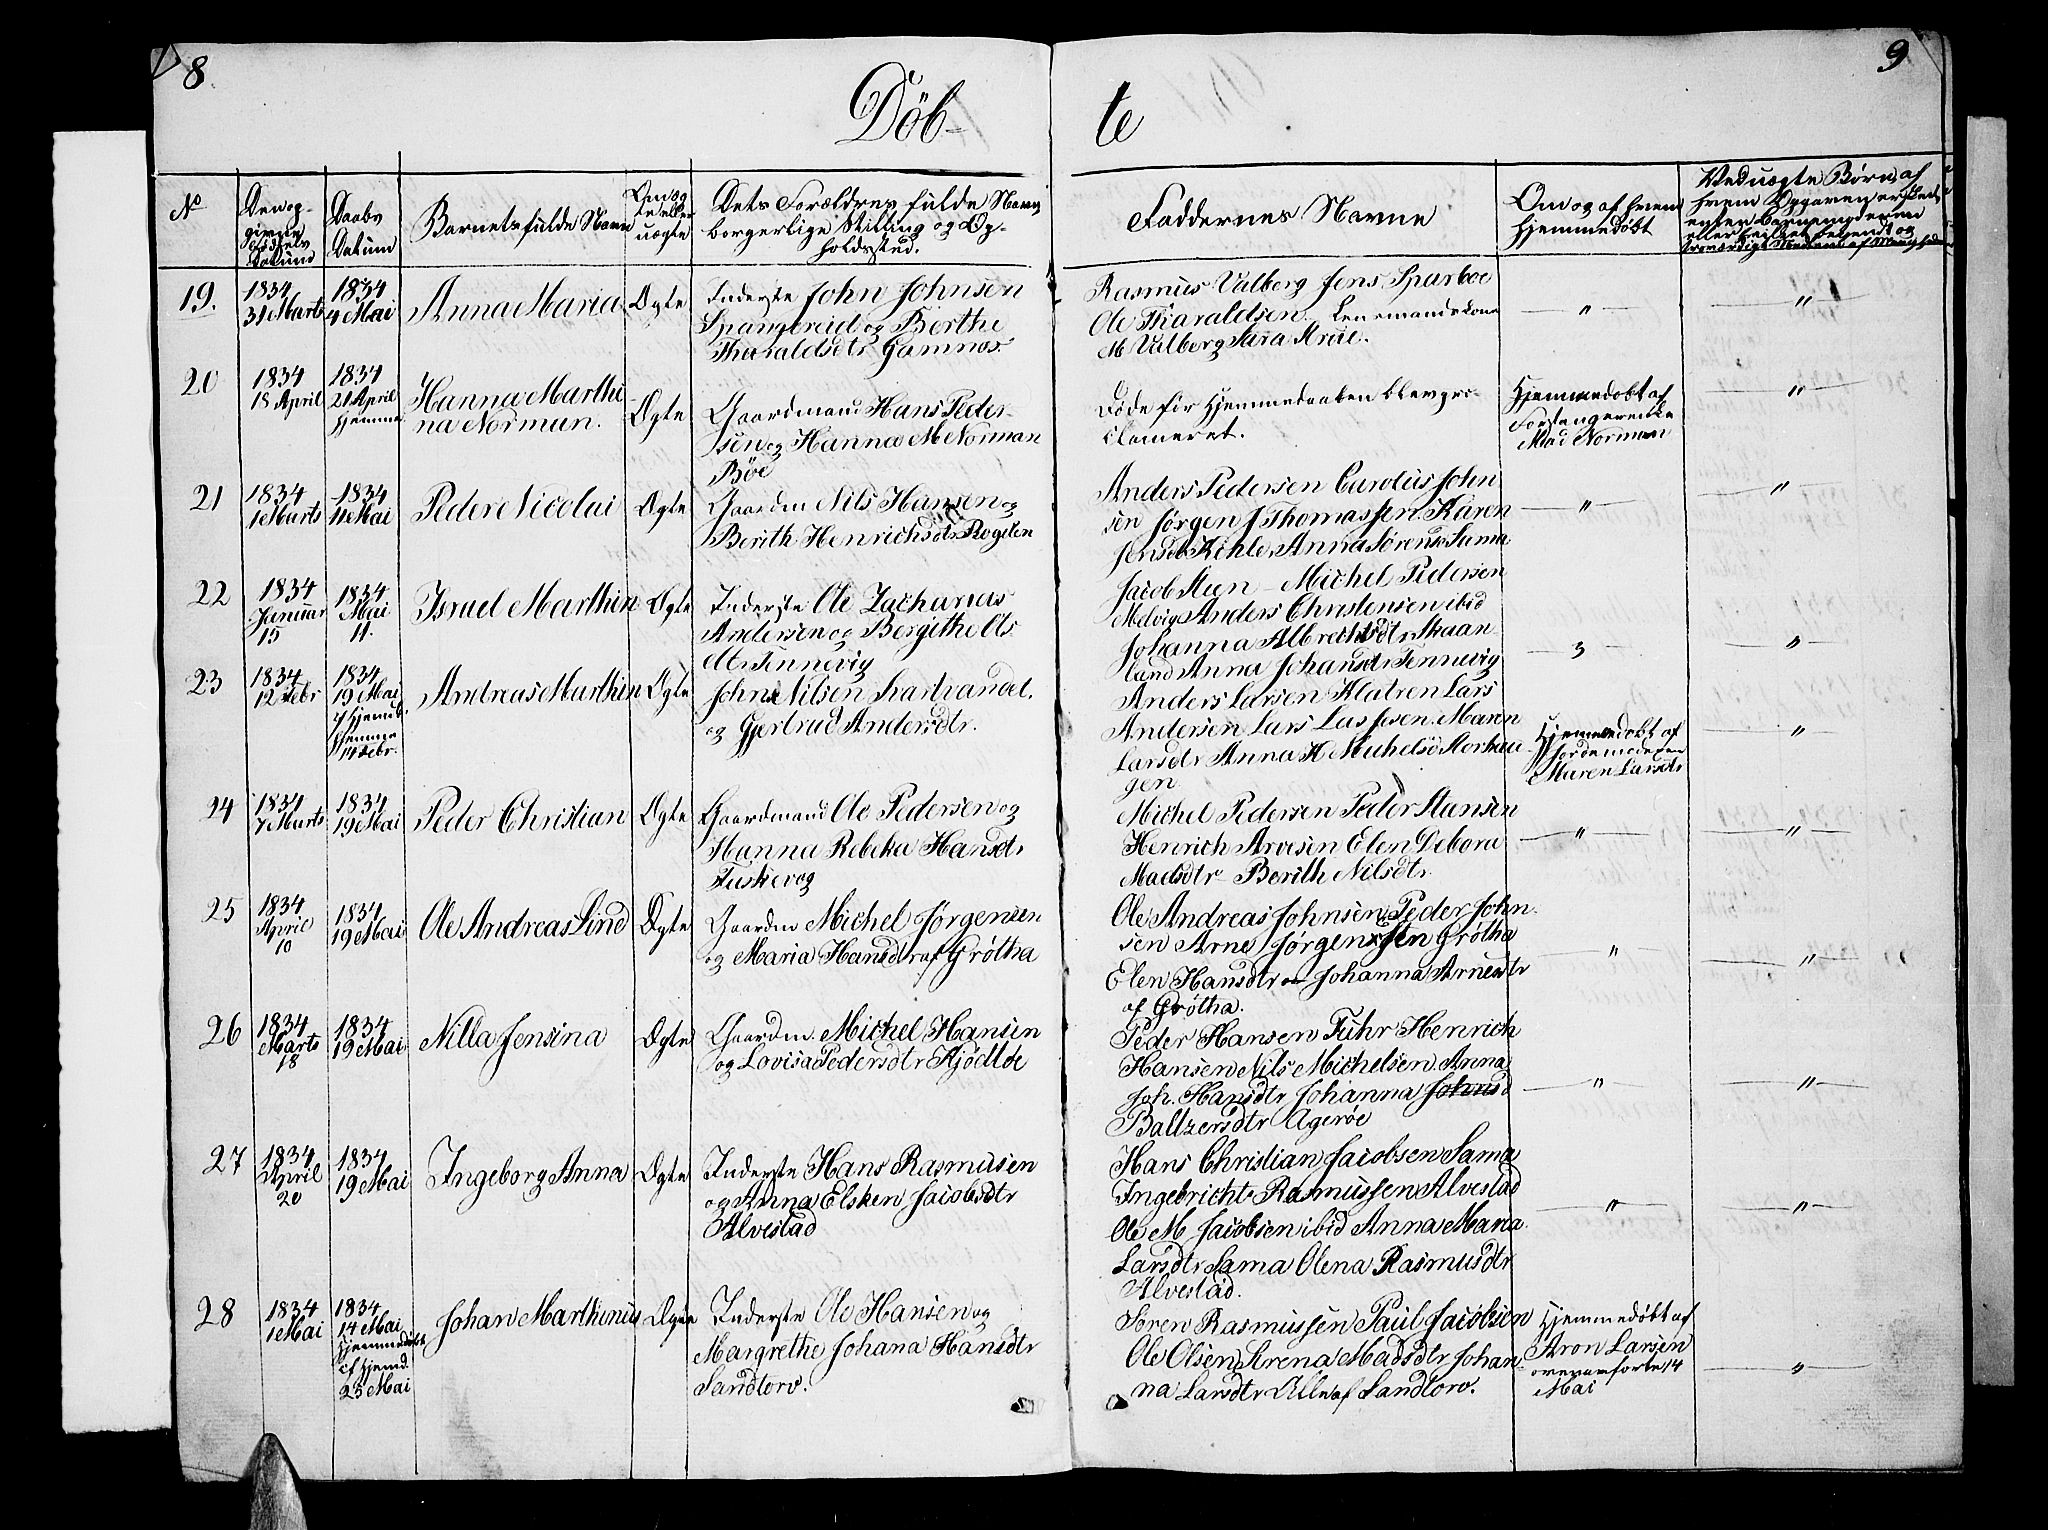 8.
9
Döb-
te
No
Den op-
givne
Födsels
Datum
Daabs
Datum
Barnets fulde Navn
Om æg-
te eller
uægte
Dets Forældres fulde Navn
borgerlige Stilling og Op-
holdssted.
Faddernes Navne
Om og af hvem
hjemmedøbt
Ved uægte Børn, af
hvem Opgaven er skeet
enten Barnemoderen
19.
1834
31 Marts
1834
4 Mai
Anna Maria
Ægte
Inderste John Johnsen
Spangereid og Berthe
Tharaldsdtr Gamnæs.
Rasmus Valberg Jens Sparboe
Ole Tharaldsen. Lensmandskone
M Valberg Sara Krüe.
"
"
20
1834
18 April
1834
21 April
hjemme
Hanna Marthi-
na Norman.
Ægte
Gaardmand Hans Peder-
sen og Hanna M Norman
Böe
Døde før Hjemmedaaben blev pro-
clameret.
Hjemmedøbt af
Mad Norman
"
21
1834
1 Marts
1834
11 Mai
Peder Nicolai
Ægte
Gaardm Nils Hansen og
Berith Henrichsdtr Rogsten
Anders Pedersen Carolus John
sen Jørgen J Thomassen. Karen
Jensdtr Kihle, Anna Sørensd Sama
"
"
22
1834
Januar
15
1834
Mai
11.
Israel Marthin
Ægte
Inderste Ole Zacharias
Andersen og Bergithe Ols
dtr Tennevig
Jacob Steen - Michel Pedersen
Melvig Anders Christensen ibid
Johanna Albrechtsdtr Skaan-
land Anna Johansdtr Tennevig
"
23
1834
12 Febr
1834
19 Mai
hjemme
14 Febr.
Andreas Marthin
Ægte
John Nilsen
og Gjertrud Andersdtr.
Anders Larsen Klatren Lars
Andersen Lars Lassesen. Maren
Larsdtr Anna K Michelsd
gen
Hjemmedøbt af
Jordemoderen
Maren Larsdtr
"
24
1834
7 Marts
1834
19 Mai
Peder Christian
Ægte
Gaardmand Ole Pedersen og
Hanna Rebeka Hansdtr
Fuskevog
Michel Pedersen Peder Hansen
Henrich Arvesen Elen Debora
Madsdtr - Berith Nilsdtr.
"
"
25
1834
April
10
1834
19 Mai
Ole Andreas Lind
Ægte
Gaardm Michel Jørgensen
og Maria Hansdtr af Grøtha
Ole Andreas Johnsen Peder John-
sen Arne Jørgensen Grøtha
Elen Hansdtr Johanna Arnesdtr
af Grøtha.
"
"
26
1834
Marts
18
1834
19 Mai
Nilla Jensina
Ægte
Gaardm. Michel Hansen
og Lovisa Pedersdtr
Peder Hansen Fuhr Henrich
Hansen Nils Michelsen Anna
Joh. Hansdtr Johanna Johansd
Baltzersdtr Agerøe
"
"
27
1834
April
20
1834
19 Mai
Ingeborg Anna
Ægte
Inderste Hans Rasmusen
og Anna Elsken Jacobsdtr
Alvestad
Hans Christian Jacobsen Sama
Ingebricht Rasmussen Alvestad
Ole M Jacobsen ibid Anna Maria
Larsdtr Sama Olena Rasmusdtr
Alvestad.
"
"
28
1834
1 Mai
1834
14 Mai
hjemmedøbt
25 Mai
Johan Marthinus
Ægte
Inderste Ole Hansen og
Margrethe Johana Hansdtr
Sandtorv.
Søren Rasmussen Paul Jacobsen
Ole Olsen Serena Madsdtr Johan-
na Larsdtr Alle af Sandtorv.
Hjemmedøbt af
Aron Larsen
14
Mai
"